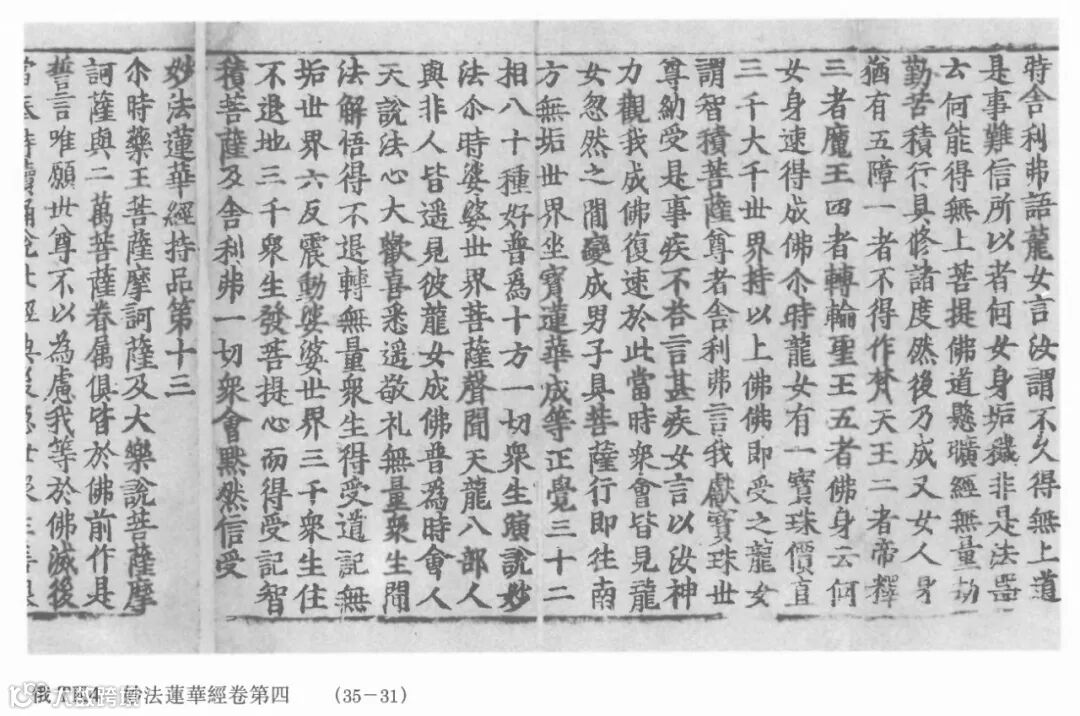 時舍利弗語龍女言汝謂不久得無上道
是事難信所以者何女身垢穢非是法器
云何能得無上菩提佛道懸曠經無量劫
勤苦積行具修諸度然後乃成又女人身
猶有五障一者不得作梵天王二者帝釋
三者魔王四者轉輪聖王五者佛身云何
女身速得成佛尒時龍女有一寶珠價直
三千大千世界持以上佛佛即受之龍女
謂智積菩薩尊者舍利弗言我獻寶珠世
尊納受是事疾不荅言甚疾女言以汝神
力觀我成佛復速於此當時眾會皆見龍
女忽然之間變成男子具菩薩行即往南
方無垢世界坐寶蓮華成等正覺三十二
相八十種好普為十方一切眾生演說妙
法尒時娑婆世界菩薩聲聞天龍八部人
與非人皆遥見彼龍女成佛普為時會人
天說法心大歡喜悉遥敬礼無量眾生聞
法解悟得不退轉無量眾生得受道記無
垢世界六反震動娑婆世界三千眾生住
不退地三千眾生發菩提心而得受記智
積菩薩及舍利弗一切眾會默然信受
妙法蓮華經持品第十三
尒時藥王菩薩摩訶薩及大樂說菩薩摩
訶薩與二萬菩薩眷属俱皆於佛前作是
誓言唯願世尊不以為慮我等於佛滅後
俄 妙法蓮華經卷第四 (35-31)